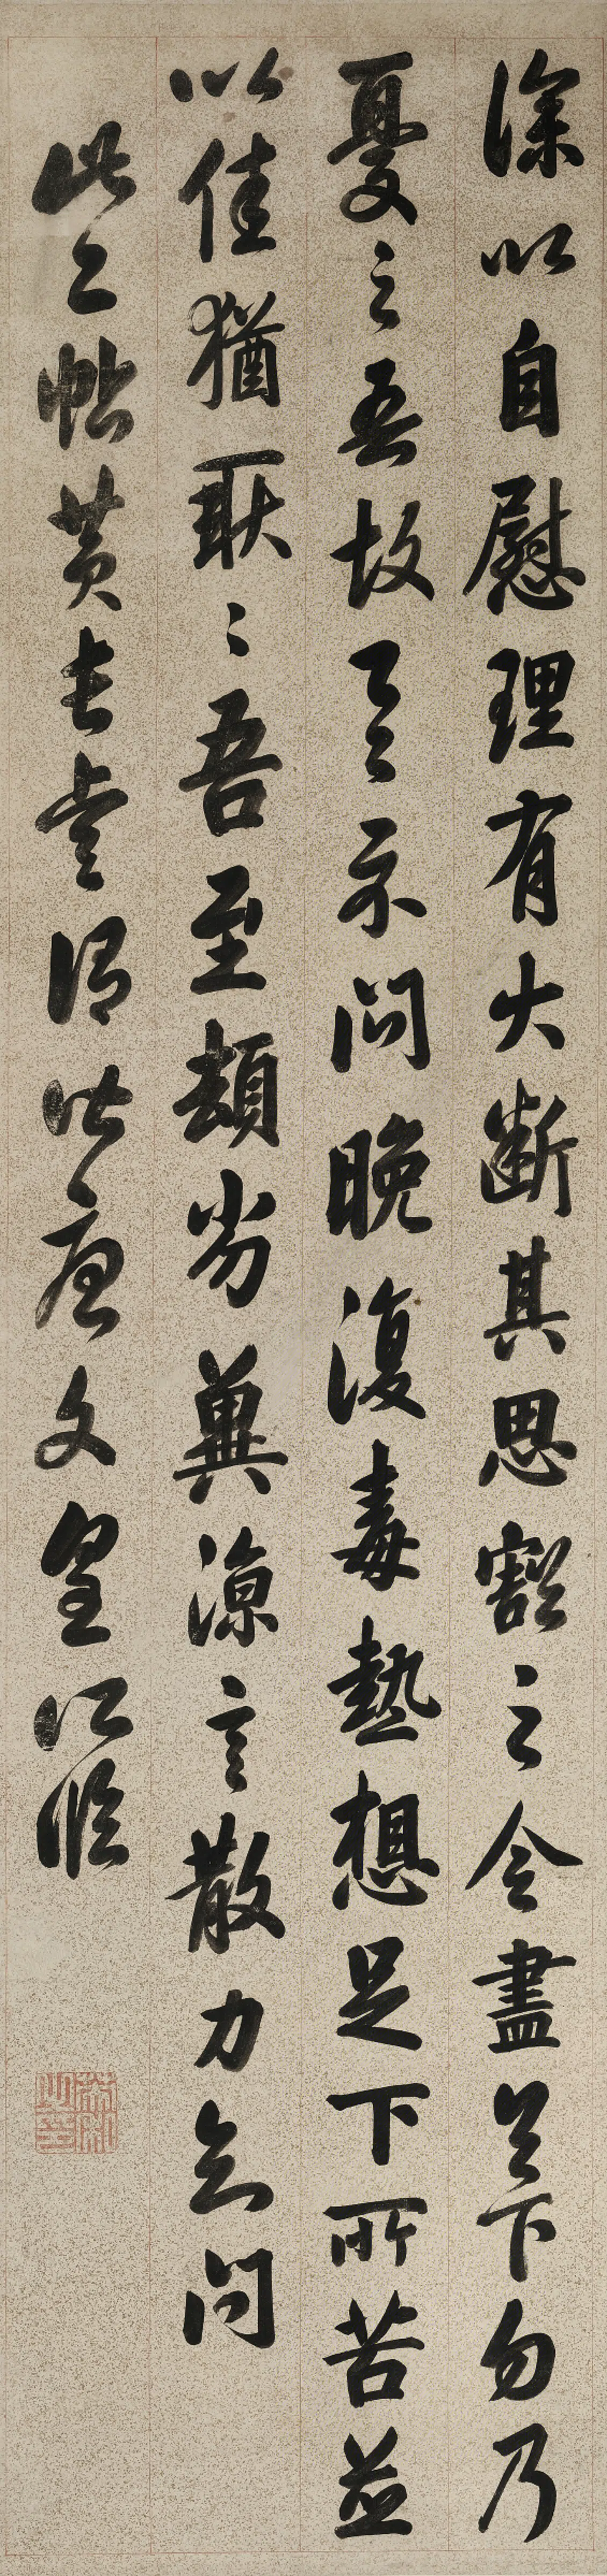 深以自慰理有大斷其思豁之令盡足下勿乃
憂之吾故有示問晚復毒熱想足下所苦並
以佳猶耿〻吾至頓劣冀涼言散力知問
此二帖黃長睿謂皆唐文皇所臨